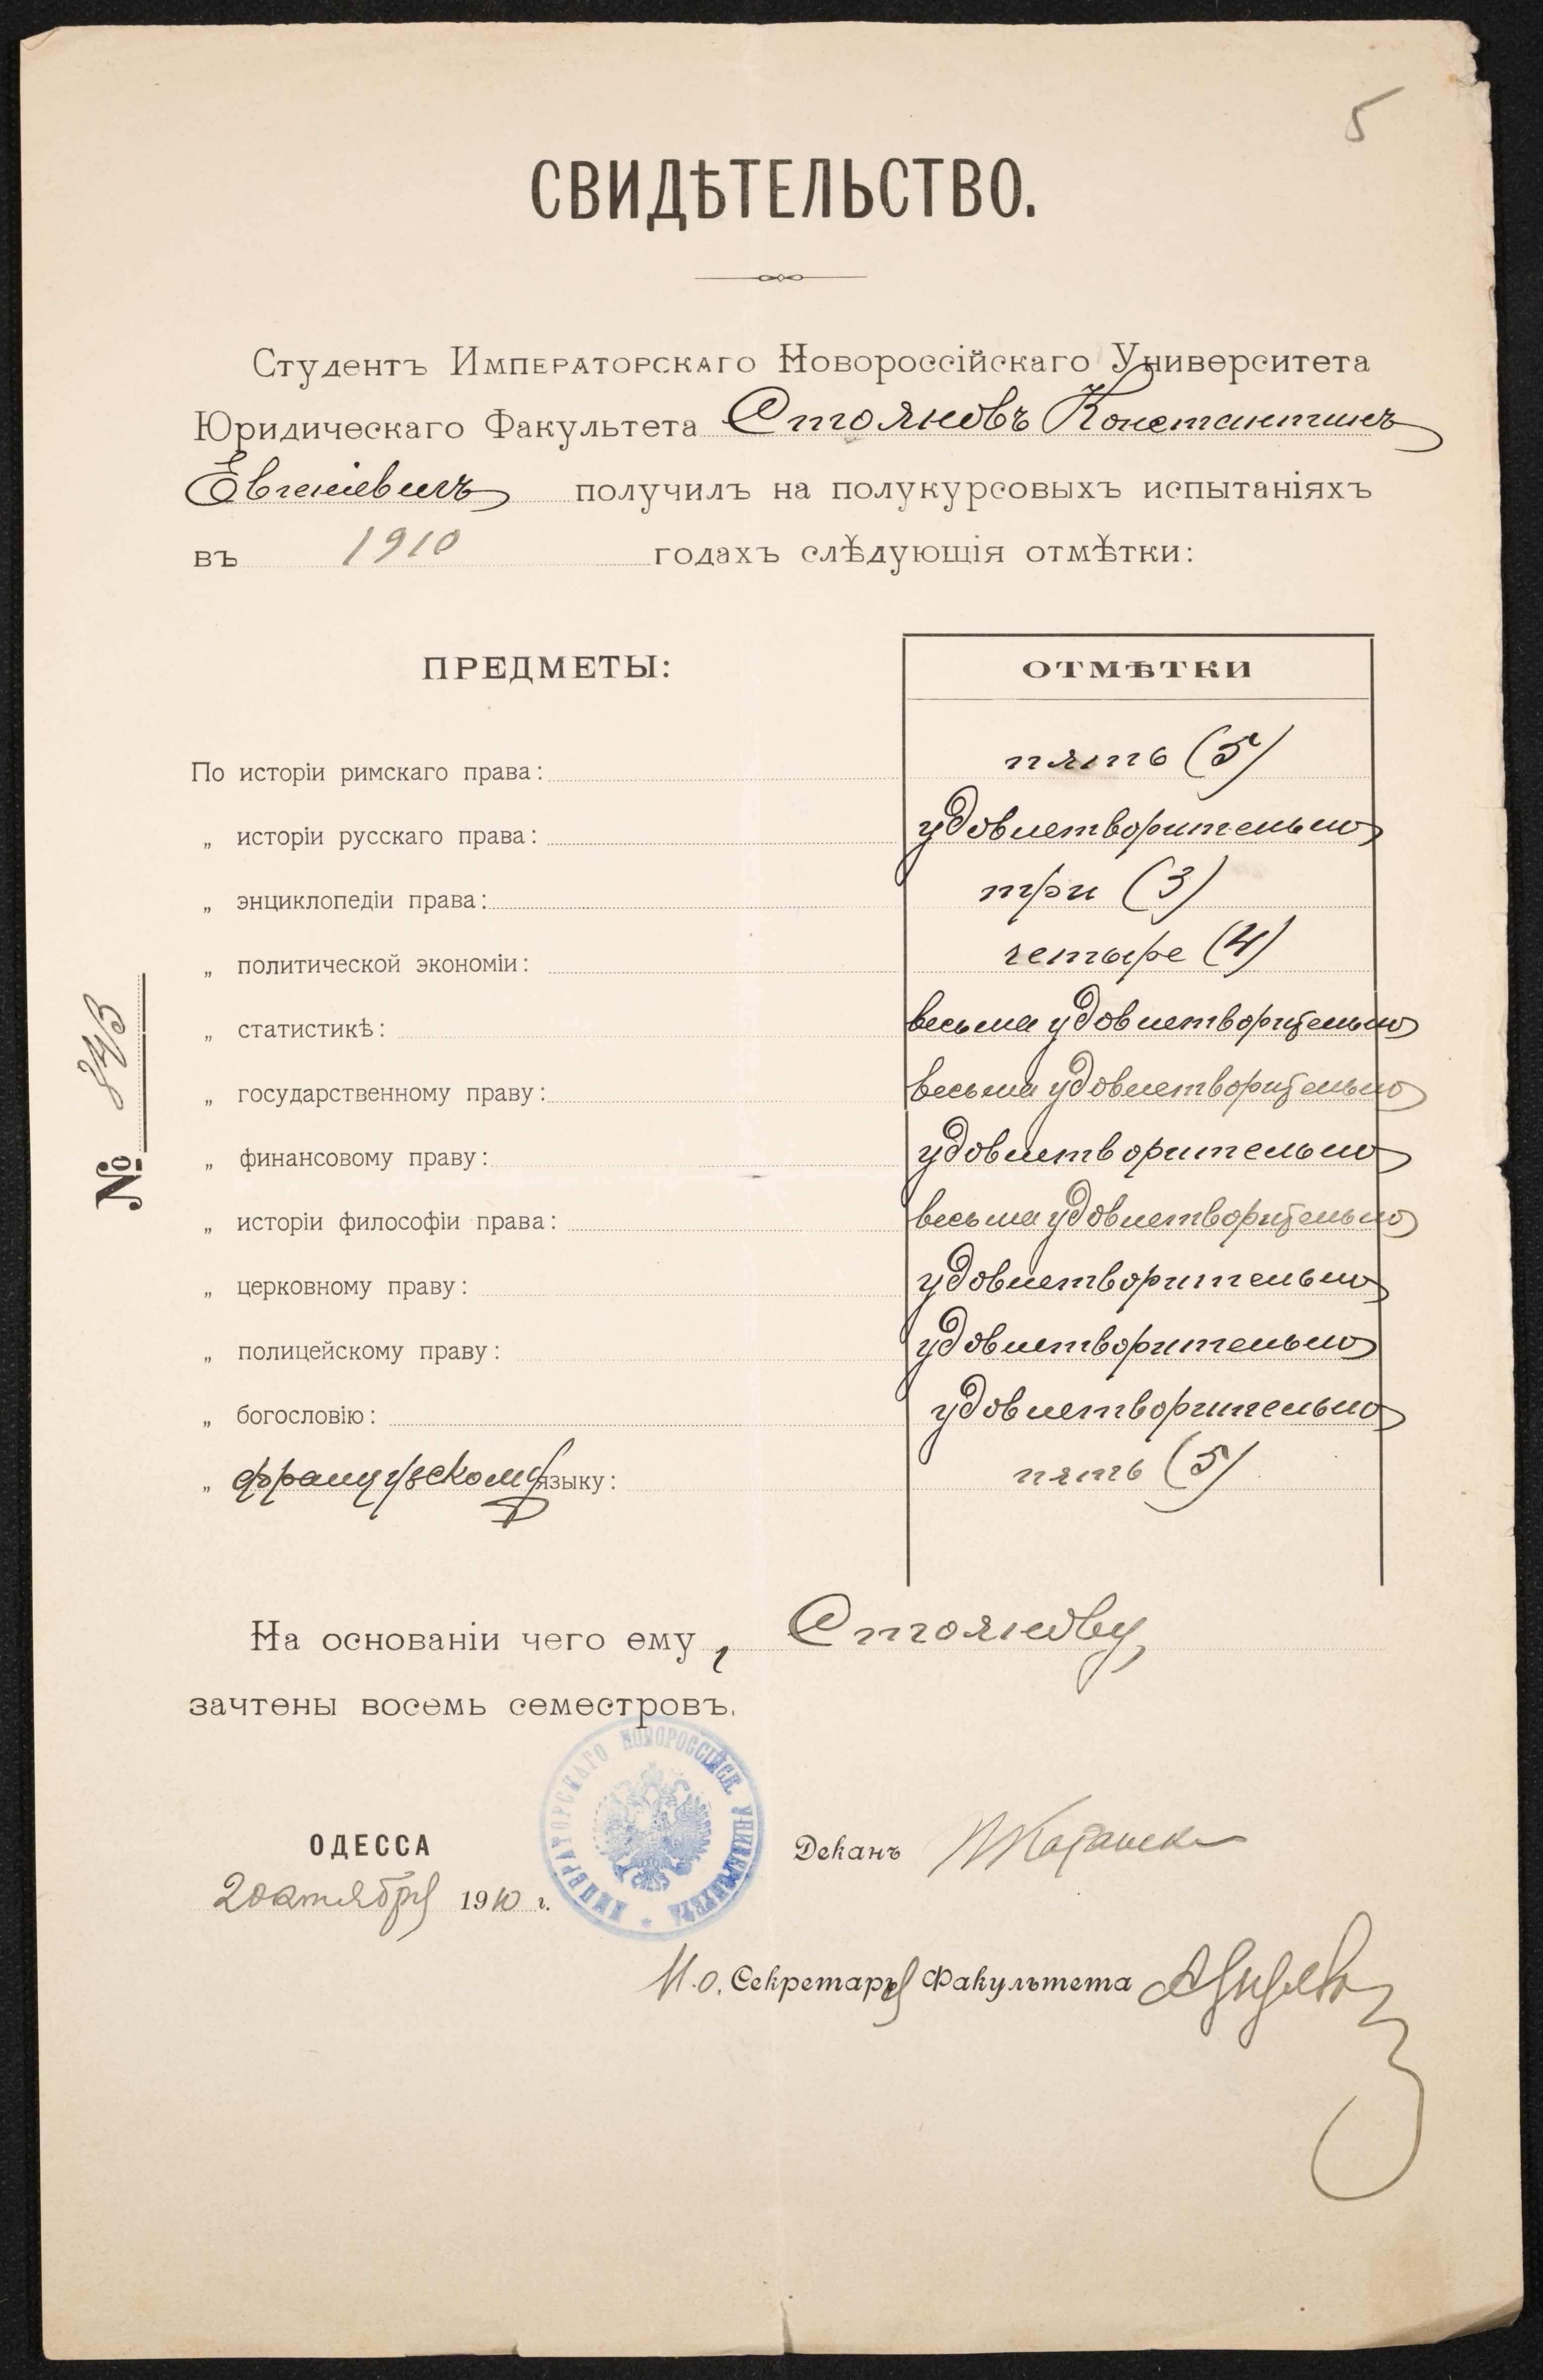 5
СВИДѢТЕЛЬСТВО.
Студентъ Императорскаго Новороссійскаго Университета
Юридическаго Факультета Стояновъ Константинъ
Евгеніевичъ получилъ на полукурсовыхъ испытаніяхъ
въ 1910 годахъ слѣдующія отмѣтки:
ПРЕДМЕТЫ: ОТМѢТКИ
По исторіи римскаго права: пять (5)
„ исторіи русскаго права: удовлетворительно
„ энциклопедіи права: три (3)
„ политической экономіи: четыре (4)
„ статистикѣ: весьма удовлетворительно
„ государственному праву: весьма удовлетворительно
„ финансовому праву: удовлетворительно
„ исторіи философіи права: весьма удовлетворительно
„ церковному праву: удовлетворительно
„ полицейскому праву: удовлетворительно
„ богословію: удовлетворительно
„ французскому языку: пять (5)
№
На основаніи чего ему, Стоянову,
зачтены восемь семестровъ.
ИМПЕРАТОРСКАГО НОВОРОССІЙСК. УНИВЕРСИТЕТА
ОДЕССА
2 октября 1910 г.
Деканъ
И.о. Секретаря Факультета